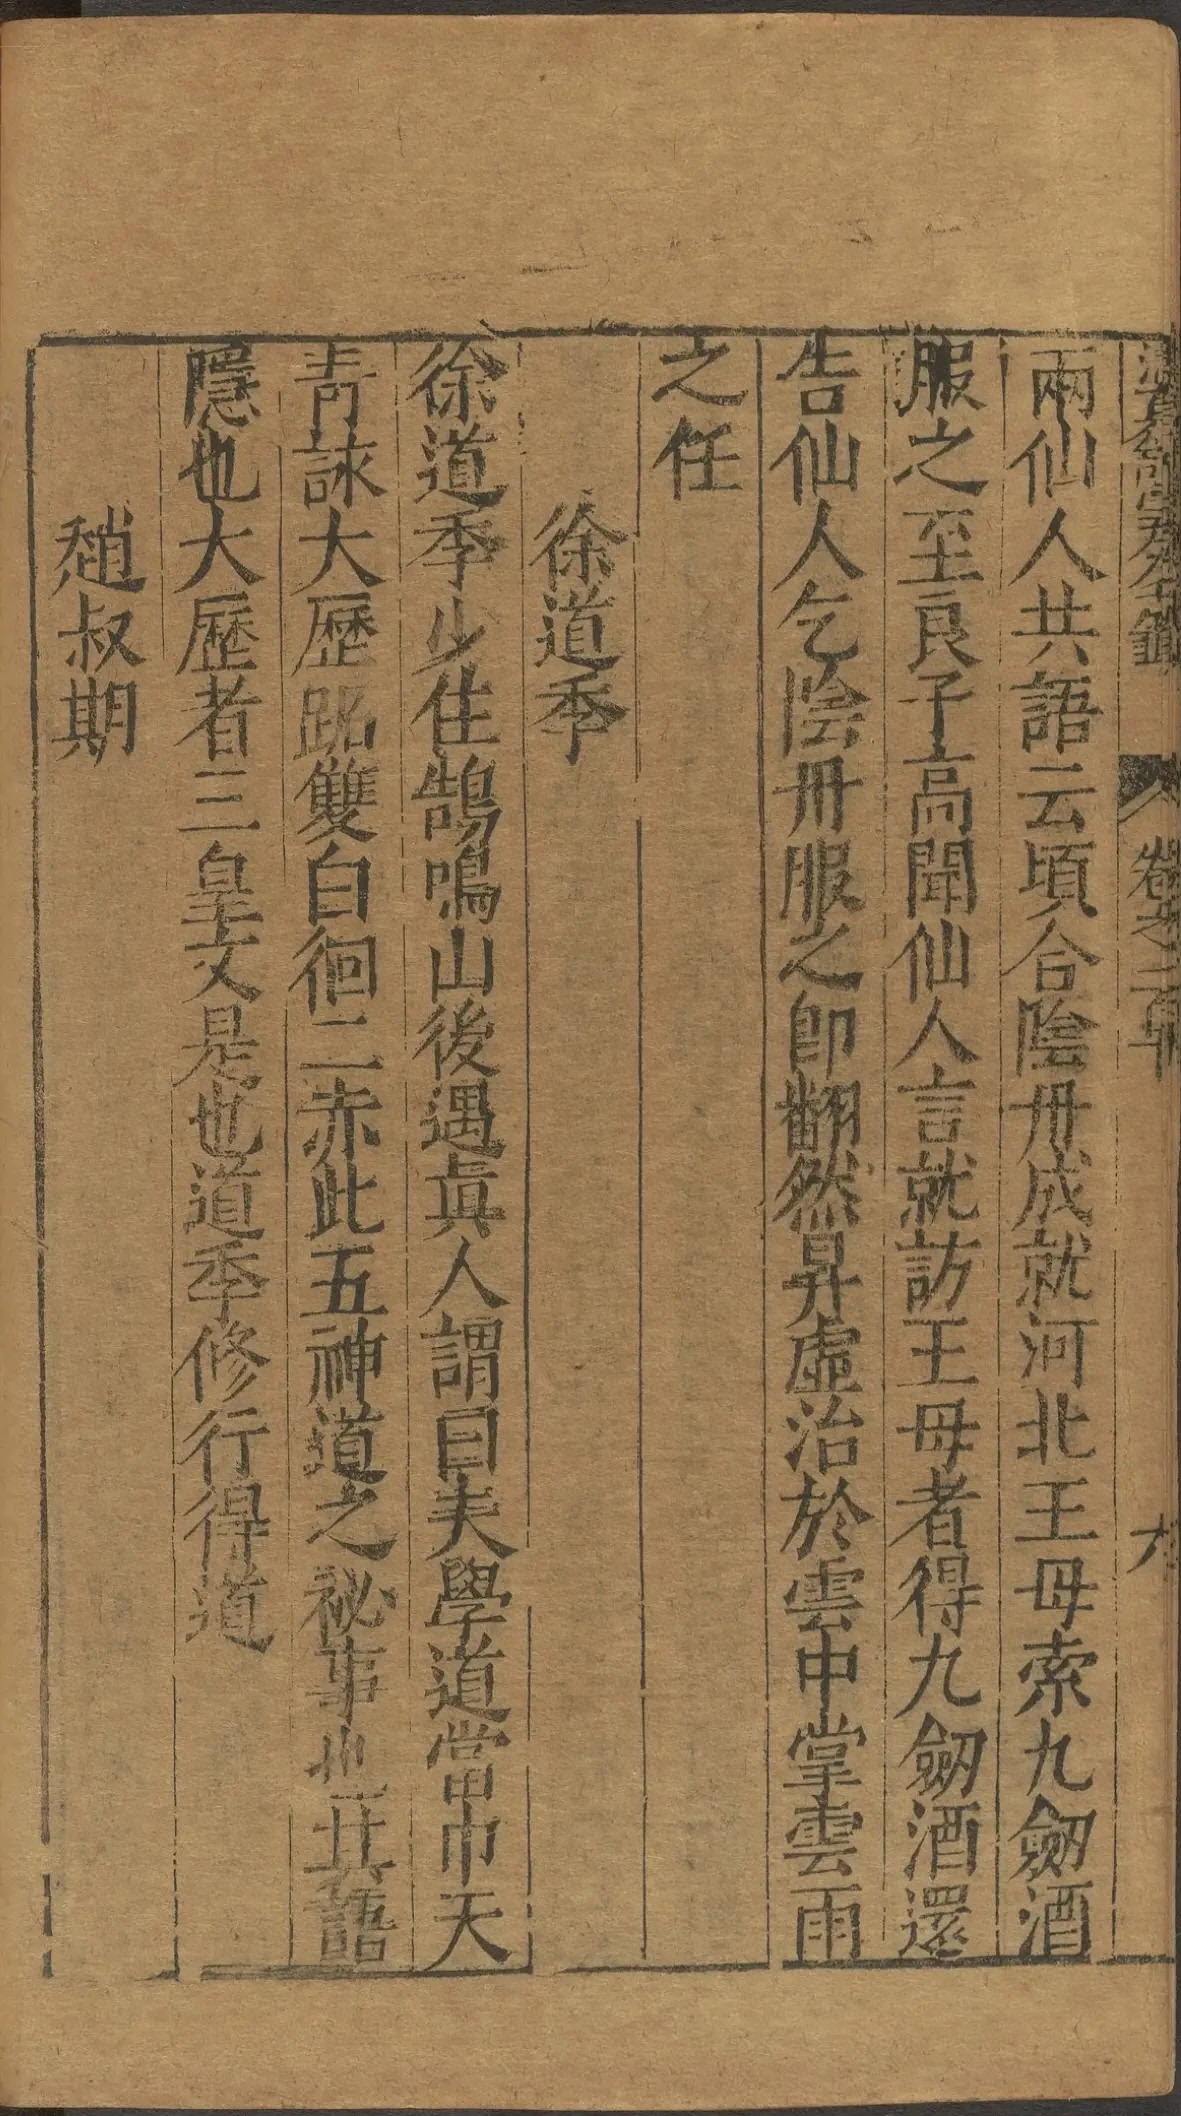 卷之二
兩仙人共語云頃合陰丹成就河北王母索九劒酒
服之至良子高聞仙人言就訪王母者得九劒酒還
告仙人乞陰丹服之卽翻然昇虛治於雲中掌雲雨
之任
徐道季
徐道季少住鵠鳴山後遇眞人謂曰夫學道當巾天
靑詠大歷跖雙白徊二赤此五神道之祕事也其語
隱也大歷者三皇文是也道季修行得道
趙叔期